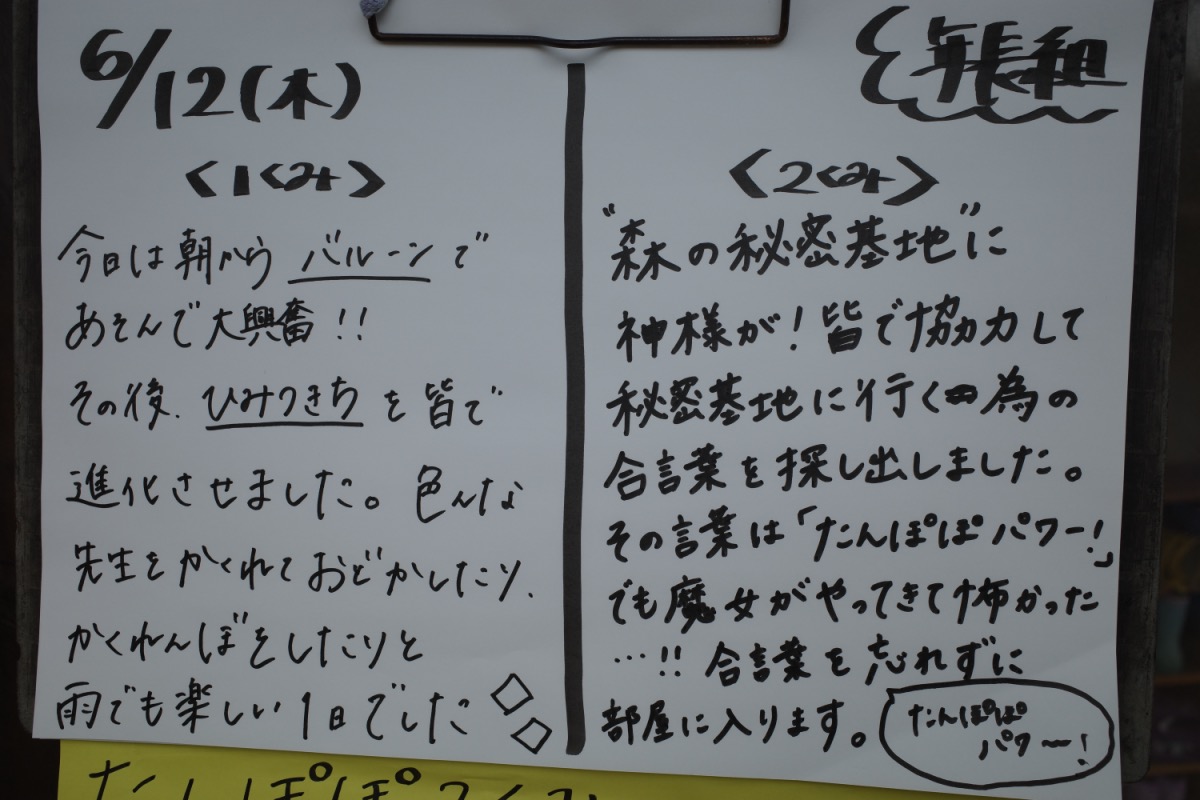 6/12(木)
年長組
<1くみ>
今日は朝から バルーンで
あそんで大興奮!!
その後、ひみつきちを皆で
進化させました。色んな
先生をかくれておどかしたり、
かくれんぼをしたりと
雨でも楽しい1日でした◇◇
<2くみ>
"森の秘密基地"に
神様が!皆で協力して
秘密基地に行く為の
合言葉を探し出しました。
その言葉は「たんぽぽパワー!」
でも魔女がやってきて怖かった
…!!合言葉を忘れずに
部屋に入ります。
たんぽぽ
パワ〜!
たんぽぽ2くみ